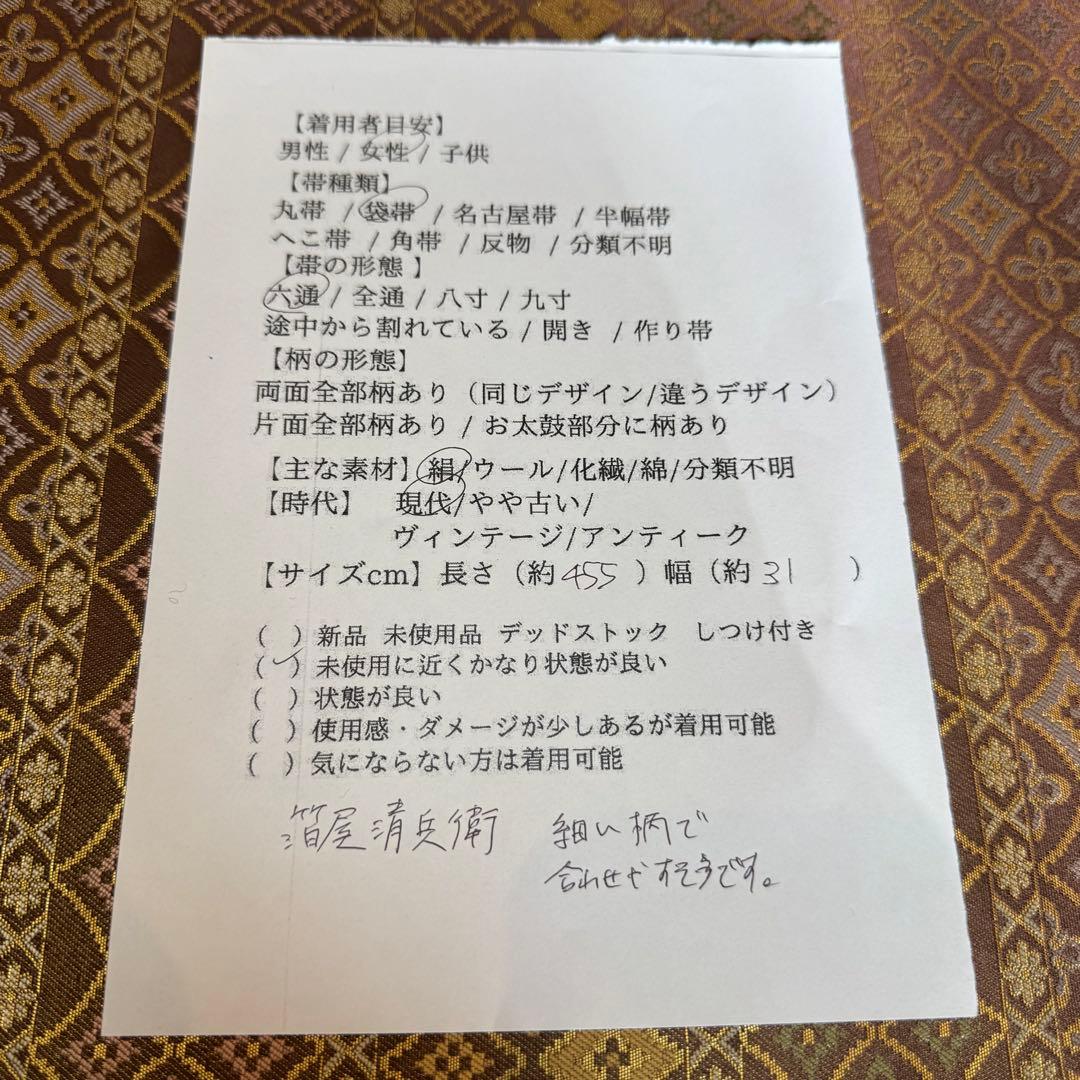 【着用者目安】
男性 / 女性 / 子供
【帯種類】
丸帯 / 袋帯 / 名古屋帯 / 半幅帯
へこ帯 / 角帯 / 反物 / 分類不明
【帯の形態 】
六通 / 全通 / 八寸 / 九寸
途中から割れている / 開き / 作り帯
【柄の形態】
両面全部柄あり（同じデザイン/違うデザイン）
片面全部柄あり / お太鼓部分に柄あり
【主な素材】絹/ウール/化繊/綿/分類不明
【時代】 現代/やや古い/
ヴィンテージ/アンティーク
【サイズcm】長さ（約 455 ）幅（約 31 ）
( ) 新品 未使用品 デッドストック しつけ付き
(✓) 未使用に近くかなり状態が良い
( ) 状態が良い
( ) 使用感・ダメージが少しあるが着用可能
( ) 気にならない方は着用可能
屋清兵衛 細い柄で
合わせやすそうです。